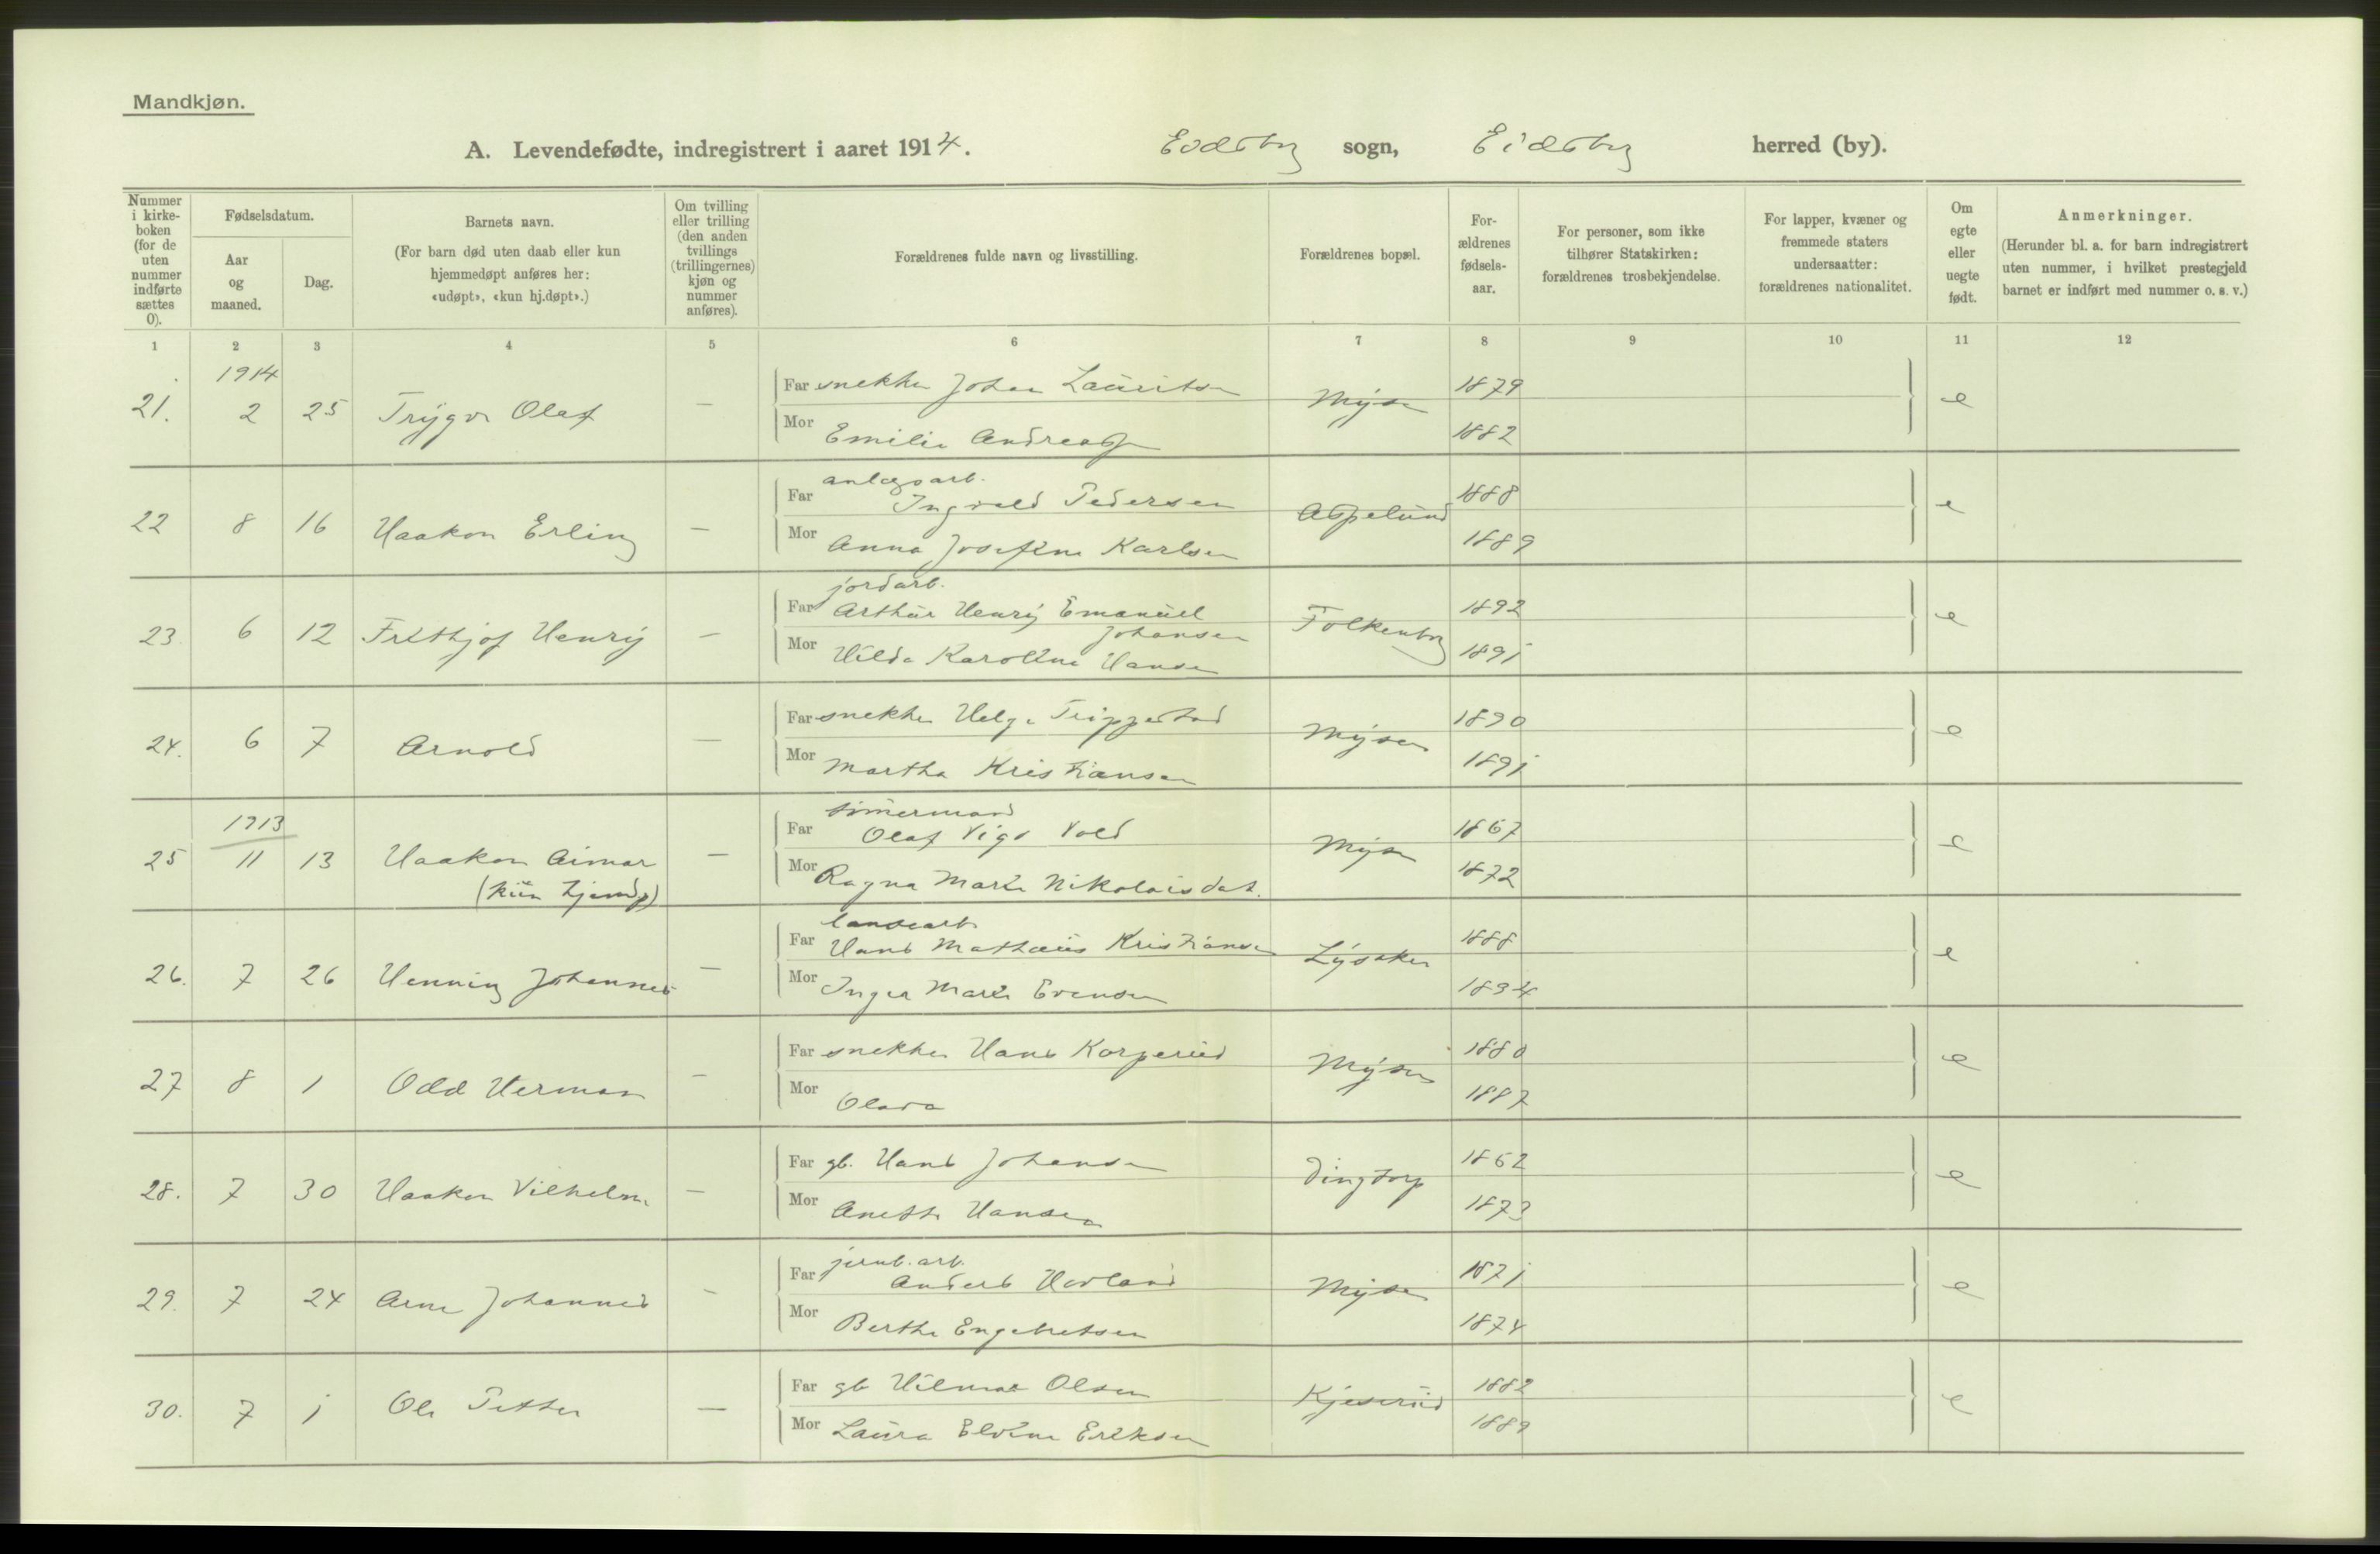 Mandkjøn.
A. Levendefødte, indregistrert i aaret 1914. Eidsberg sogn, Eidsberg herred (by).
Nummer i kirke-boken (for de uten nummer indførte sættes 0).
Fødselsdatum.
Aar og maaned.
Dag.
Barnets navn.
(For barn død uten daab eller kun hjemmedøpt anføres her: «udøpt», «kun hj.døpt».)
Om tvilling eller trilling (den anden tvillings (trillingernes) kjøn og nummer anføres).
Forældrenes fulde navn og livsstilling.
Forældrenes bopæl.
For-ældrenes fødsels-aar.
For personer, som ikke tilhører Statskirken: forældrenes trosbekjendelse.
For lapper, kvæner og fremmede staters undersaatter: forældrenes nationalitet.
Om egte eller uegte født.
Anmerkninger.
(Herunder bl. a. for barn indregistrert uten nummer, i hvilket prestegjeld barnet er indført med nummer o. s. v.)
1 2 3 4 5 6 7 8 9 10 11 12
1914
21. 2 25 Trygve Olaf — Far snekker Johan Lauritsen Mysen 1879 e
Mor Emilie Andreassen 1882
22 8 16 Haakon Erling — Far anlægsarb. Ingvald Pedersen Aspelund 1888 e
Mor Anna Josefine Karlsen 1889
23. 6 12 Frithjof Henry — Far jordarb. Arthur Henry Emanuel Johansen Folkenborg 1892 e
Mor Hilda Karoline Hansen 1891
24. 6 7 Arnold — Far snekker Helge Trippestad Mysen 1890 e
Mor Martha Kristiansen 1891
1913
25 11 13 Haakon Eimar (kun hjemdp) — Far tømmermand Olaf Vigo Vold Mysen 1867 e
Mor Ragna Marie Nikolaisdat. 1872
26. 7 26 Henning Johannes — Far landearb. Hans Mathæus Kristiansen Lysaker 1888 e
Mor Inger Marie Evensen 1894
27 8 1 Odd Herman — Far snekker Hans Korperud Mysen 1880 e
Mor Olava 1887
28. 7 30 Haakon Vilhelm — Far gb. Hans Johansen Dingtorp 1862 e
Mor Anette Hansen 1873
29. 7 24 Arne Johannes — Far jernb. arb. Anders Hovland Mysen 1871 e
Mor Berthe Engebretsen 1874
30. 7 1 Ole Petter — Far gb Hilmar Olsen Kjeserud 1882 e
Mor Laura Elvine Eriksen 1889